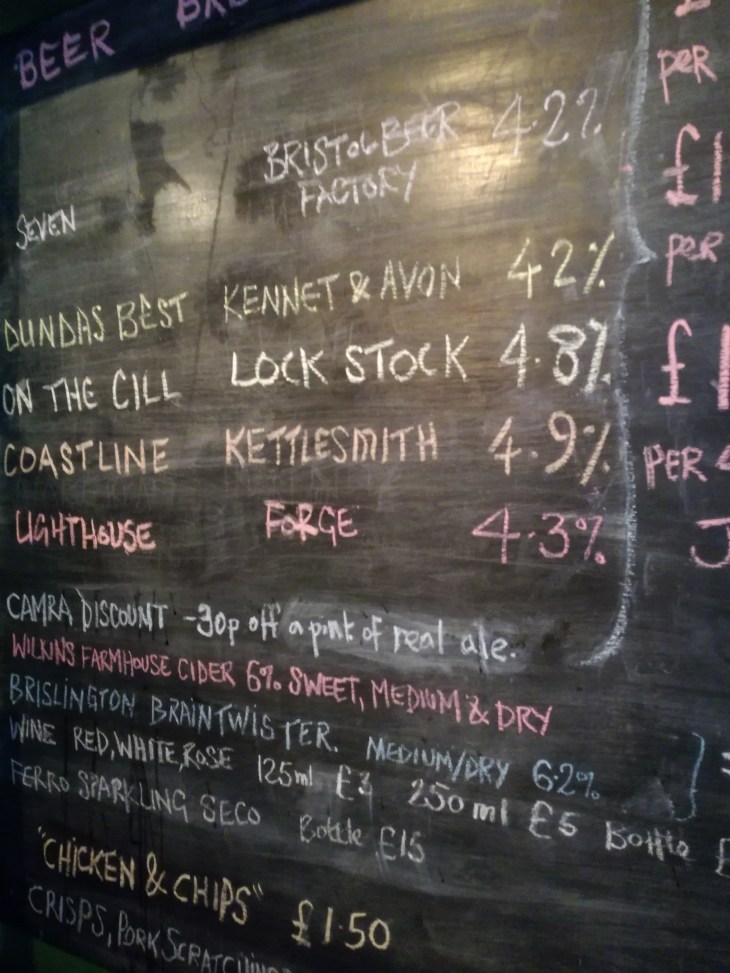 BEER
SEVEN BRISTOL BEER FACTORY 4.2%
DUNDAS BEST KENNET & AVON 4.2%
ON THE CILL LOCK STOCK 4.8%
COASTLINE KETTLESMITH 4.9%
LIGHTHOUSE FORGE 4.3%
per
£1
per
£1
PER
CAMRA DISCOUNT -30p off a pint of real ale.
WILKINS FARMHOUSE CIDER 6% SWEET, MEDIUM & DRY
BRISLINGTON BRAINTWISTER. MEDIUM/DRY 6.2%
WINE RED, WHITE, ROSE 125ml £3 250ml £5 Bottle £
FERRO SPARKLING SECO Bottle £15
"CHICKEN & CHIPS" £1.50
CRISPS, PORK